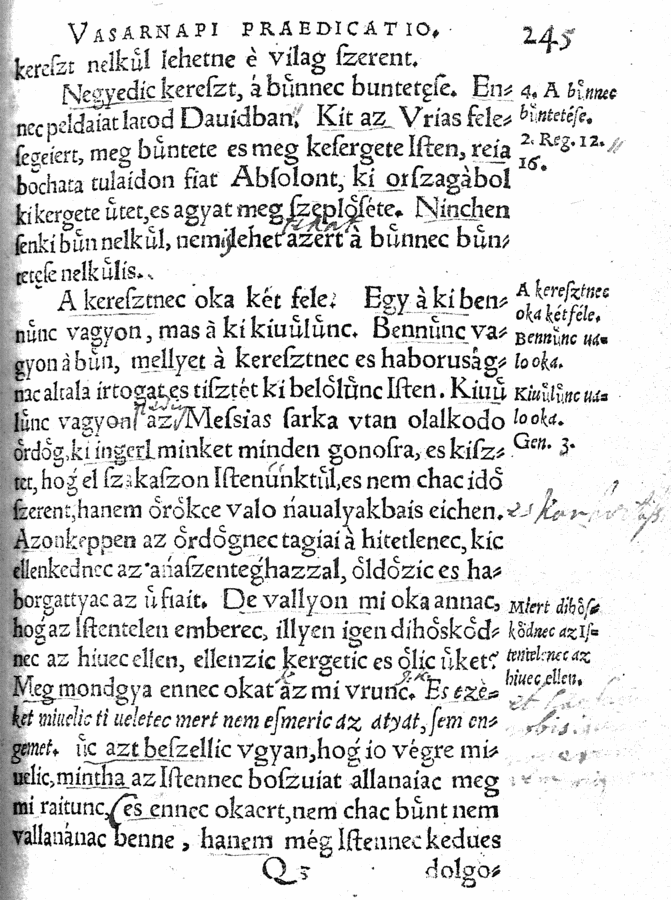 VASARNAPI PRAEDICATIO. 245
kereſzt nelkůl lehetne è vilag ſzerent.
Negyedic kereſzt, á bůnnec buntetęſe. En⸗
nec peldaiat latod Dauidban. Kit az Vrias fele⸗
ſegeiert, meg bůntete es meg keſergete Iſten, reía
bochata tulaídon fiat Abſolont, ki orſzagàbol
ki kergete ůtet, es agyat meg ſzeplőſéte. Ninchen
ſenki bůn nelkůl, nem lehet azert à bůnnec bůn⸗
tetęſe nelkůlis.
A kereſztnec oka két fele. Egy à ki ben⸗
nůnc vagyon, mas à ki kiuůlůnc. Bennůnc va⸗
gyon à bůn, mellyet à kereſztnec es haboruság⸗
nac altala irtogat es tiſztét ki belőlůnc Iſten. Kiuů
lůnc vagyon az Meſsias ſarka vtan olalkodo
ördög, ki ingerl minket minden gonoſra, es kiſz⸗
tet, hog el ſzakaſzon Iſtenůnktůl, es nem chac idő
ſzerent, hanem őrőkce valo ńaualyakbais eichen.
Azonkeppen az őrdőgnec tagiai à hitetlenec, kic
ellenkednec az ańaſzenteghazzal, őldőzic es ha⸗
borgattyac az ů fiait. De vallyon mi oka annac,
hog az Iſtentelen emberec, illyen igen dihőſkőd⸗
nec az hiuec ellen, ellenzic kergetic es őlic ůket?
Meg mondgya ennec okat az mi vrunc. Es ezè⸗
ket miuelic ti ueletec mert nem eſmeric az atyat, ſem en⸗
gemet. ůc azt beſzellic vgyan, hog io végre mi⸗
uelic, mintha az Iſtennec boſzuiat allanaiac meg
mi raitunc, es ennec okaert, nem chac bůnt nem
vallanànac benne, hanem még Iſtennec kedues
Q 5 dolgo⸗
4. A bůnnec
bůntetéſe.
2. Reg. 12.
16.
A kereſztnec
oka kétféle.
Bennůnc ua⸗
lo oka.
Kiuůlůnc ua⸗
lo oka.
Gen. 3.
Miert dihőſ⸗
kődnec az Iſ⸗
tentelenec az
hiuec ellen.